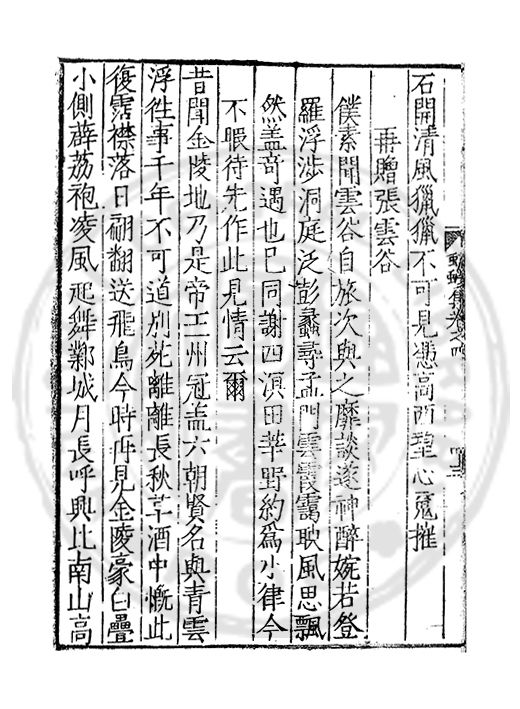 石開清風獵獵不可見憑高西望心冤摧
再贈張雲谷
僕素聞雲谷自旅次與之靡談遂神醉婉若登
羅浮涉洞庭泛彭蠡尋孟門雲霞靄映風思飄
然盖奇遇也已同謝四溟田莘野約爲小律今
不暇待先作此見情云爾
昔聞金陵地乃是帝王州冠盖六朝賢名與青雲
浮徃事千年不可道別死離離長秋草酒中慨此
復霑襟落日翩翻送飛鳥今時再見金陵豪白疊
小側薜荔袍凌風起舞鄴城月長呼興比南山高
蠛蠓集卷之四